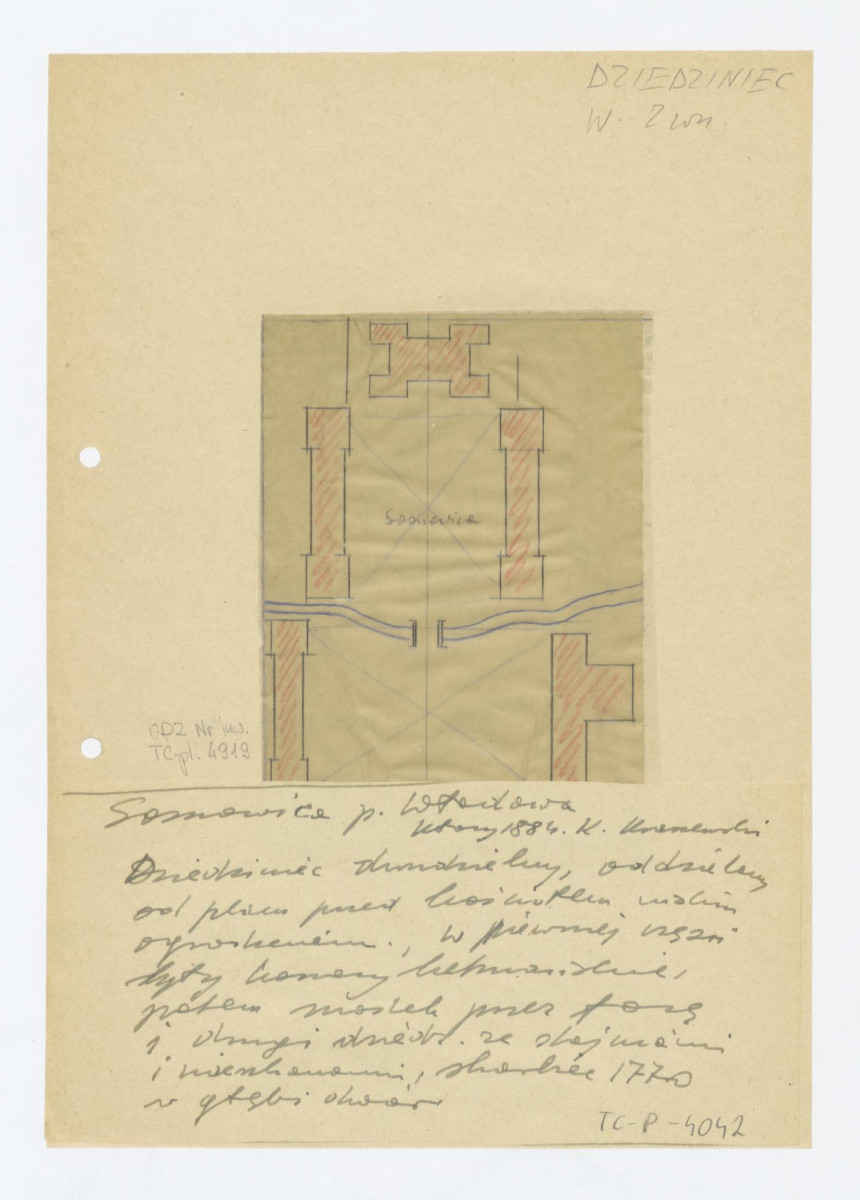 DZIEDZINIEC
W.
Sosnowica
ODZ Nr inw.
TC-pl. 4919
Sosnowica p. Włodawa
1884. K. Kraszewski
Dziedziniec dwudzielny, oddzielony
od placu przed kościołem niskim
ogrodzeniem., w pierwszej części
były hetmańskie,
potem mostek przez fosę
i drugi dziedz. ze stajniami
i mieszkaniami, 1770
w głębi dwór
TC-P-4042